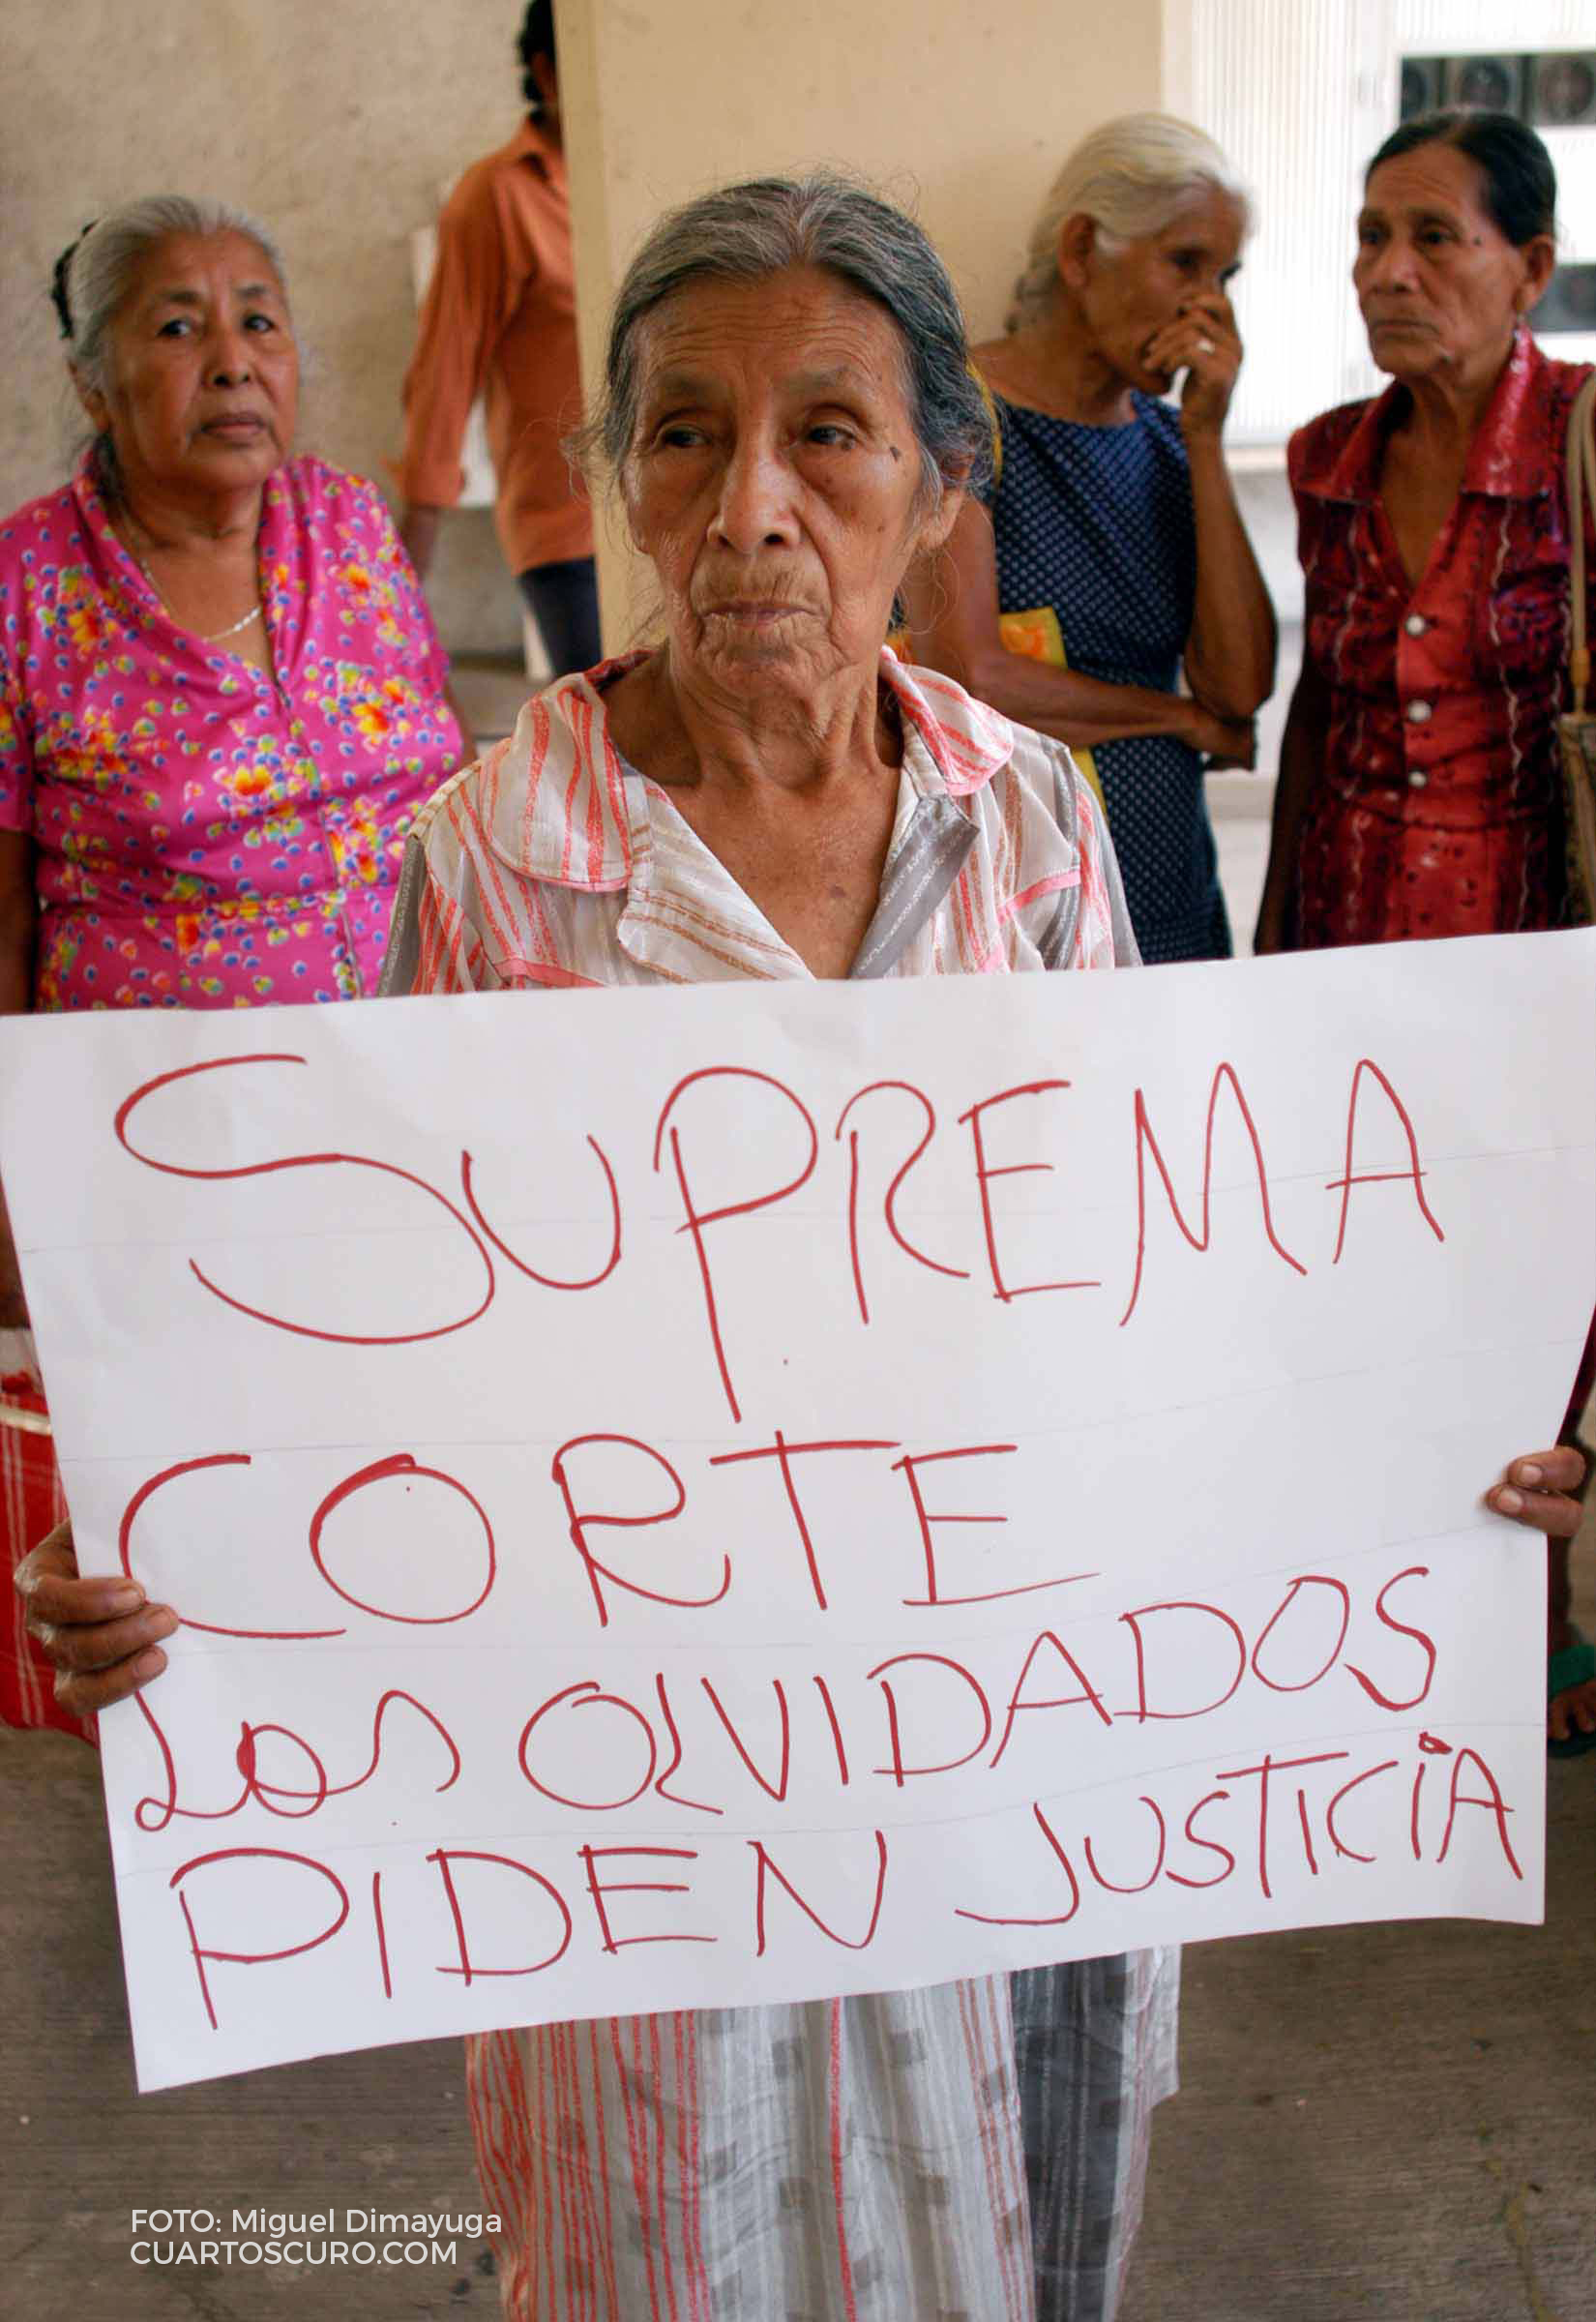 SUPREMA
CORTE
Los OLVIDADOS
PIDEN JUSTICIA
FOTO: Miguel Dimayuga
CUARTOSCURO.COM